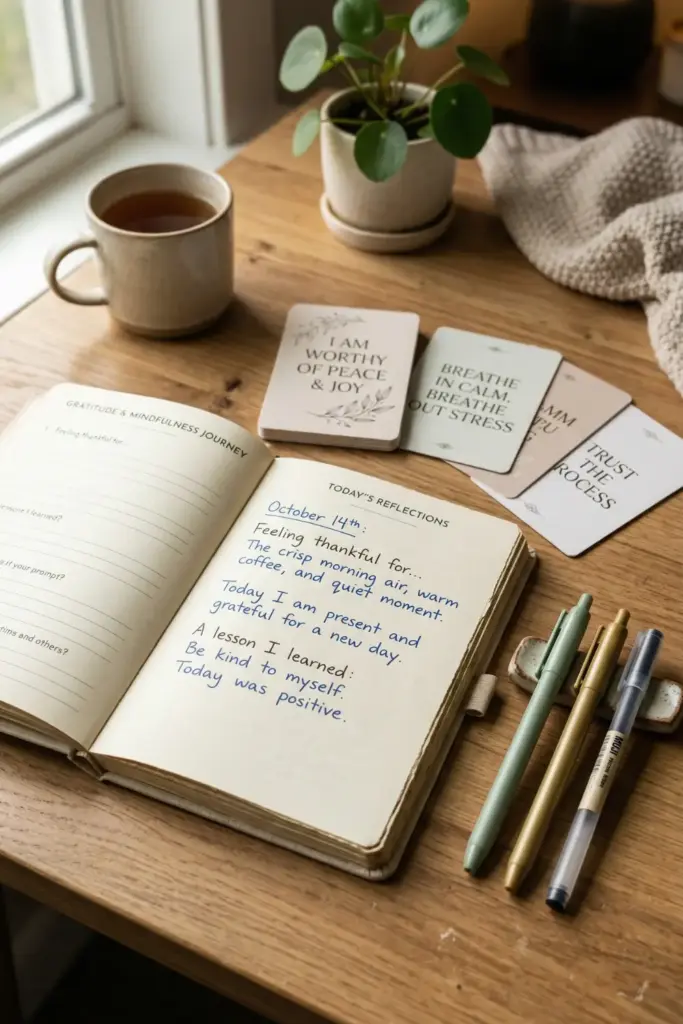 I AM
WORTHY
OF PEACE
& JOY
BREATHE
IN CALM.
BREATHE
OUT STRESS
TRUST
THE
ROCESS
GRATITUDE & MINDFULNESS JOURNEY
Feeling thankful for...
I learned?
your prompt?
and others?
TODAY'S REFLECTIONS
October 14th:
Feeling thankful for...
The crisp morning air, warm
coffee, and quiet moment.
Today I am present and
grateful for a new day.
A lesson I learned:
Be kind to myself.
Today was positive.
MUJI